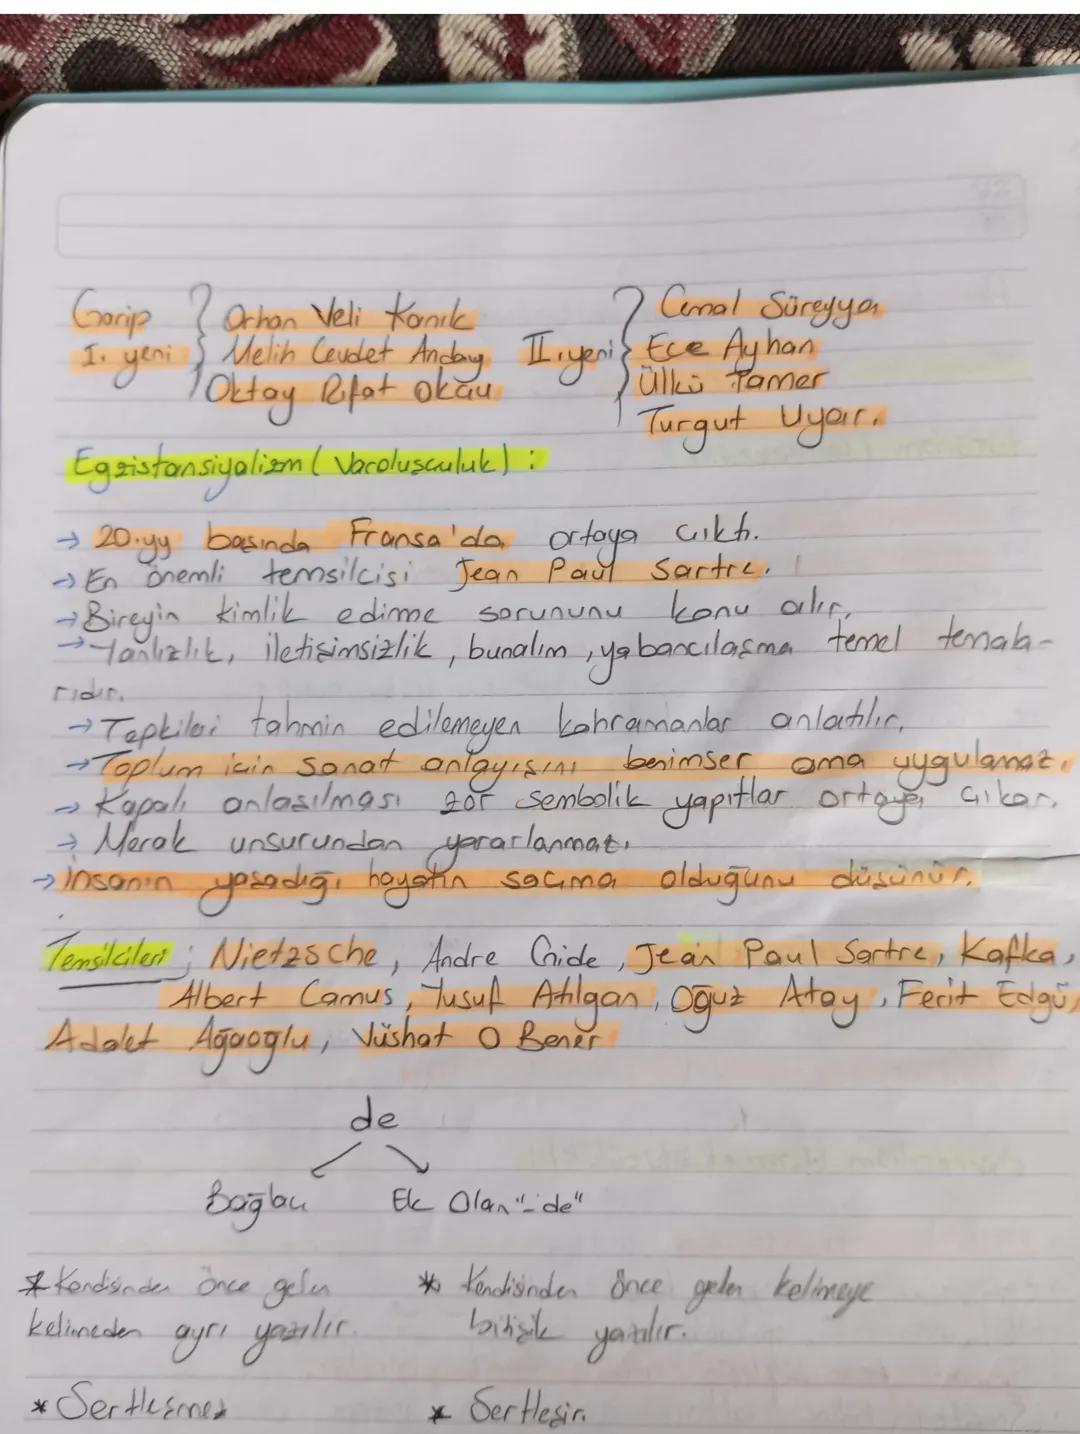 Garip
I. yeni
Orhan Veli Kanık
Melih Cevdet Anday
Oktay Rıfat Okau
II. yeni
Cemal Süreyya
Ece Ayhan
Ülkü Tamer
Turgut Uyar.
Egzistansiyalizm (Varoluşculuk) :
→ 20.yy başında Fransa'da ortaya çıktı.
→ En önemli temsilcisi Jean Paul Sartre.
→ Bireyin kimlik edinme sorununu konu alır,
→ Yanlızlık, iletişimsizlik, bunalım, yabancılaşma temel temala-
rıdır.
→ Tepkileri tahmin edilemeyen kahramanlar anlatılır,
→ Toplum için sanat anlayışını benimser ama uygulamaz.
→ Kapalı anlaşılması zor sembolik yapıtlar ortaya çıkar.
→ Merak unsurundan yararlanmaz.
→ İnsanın yaşadığı hayatın saçma olduğunu düşünür.
Temsilcileri ; Nietzsche, Andre Gide, Jean Paul Sartre, Kafka,
Albert Camus, Yusuf Atılgan, Oğuz Atay, Ferit Edgü,
Adalet Ağaoğlu, Vüshat O Bener
de
Bağlaç Ek Olan "-de"
* Kendisinden önce gelen
kelimeden ayrı yazılır.
* Kendisinden önce gelen kelimeye
bitişik yazılır.
* Sertleşmez
* Sertleşir.